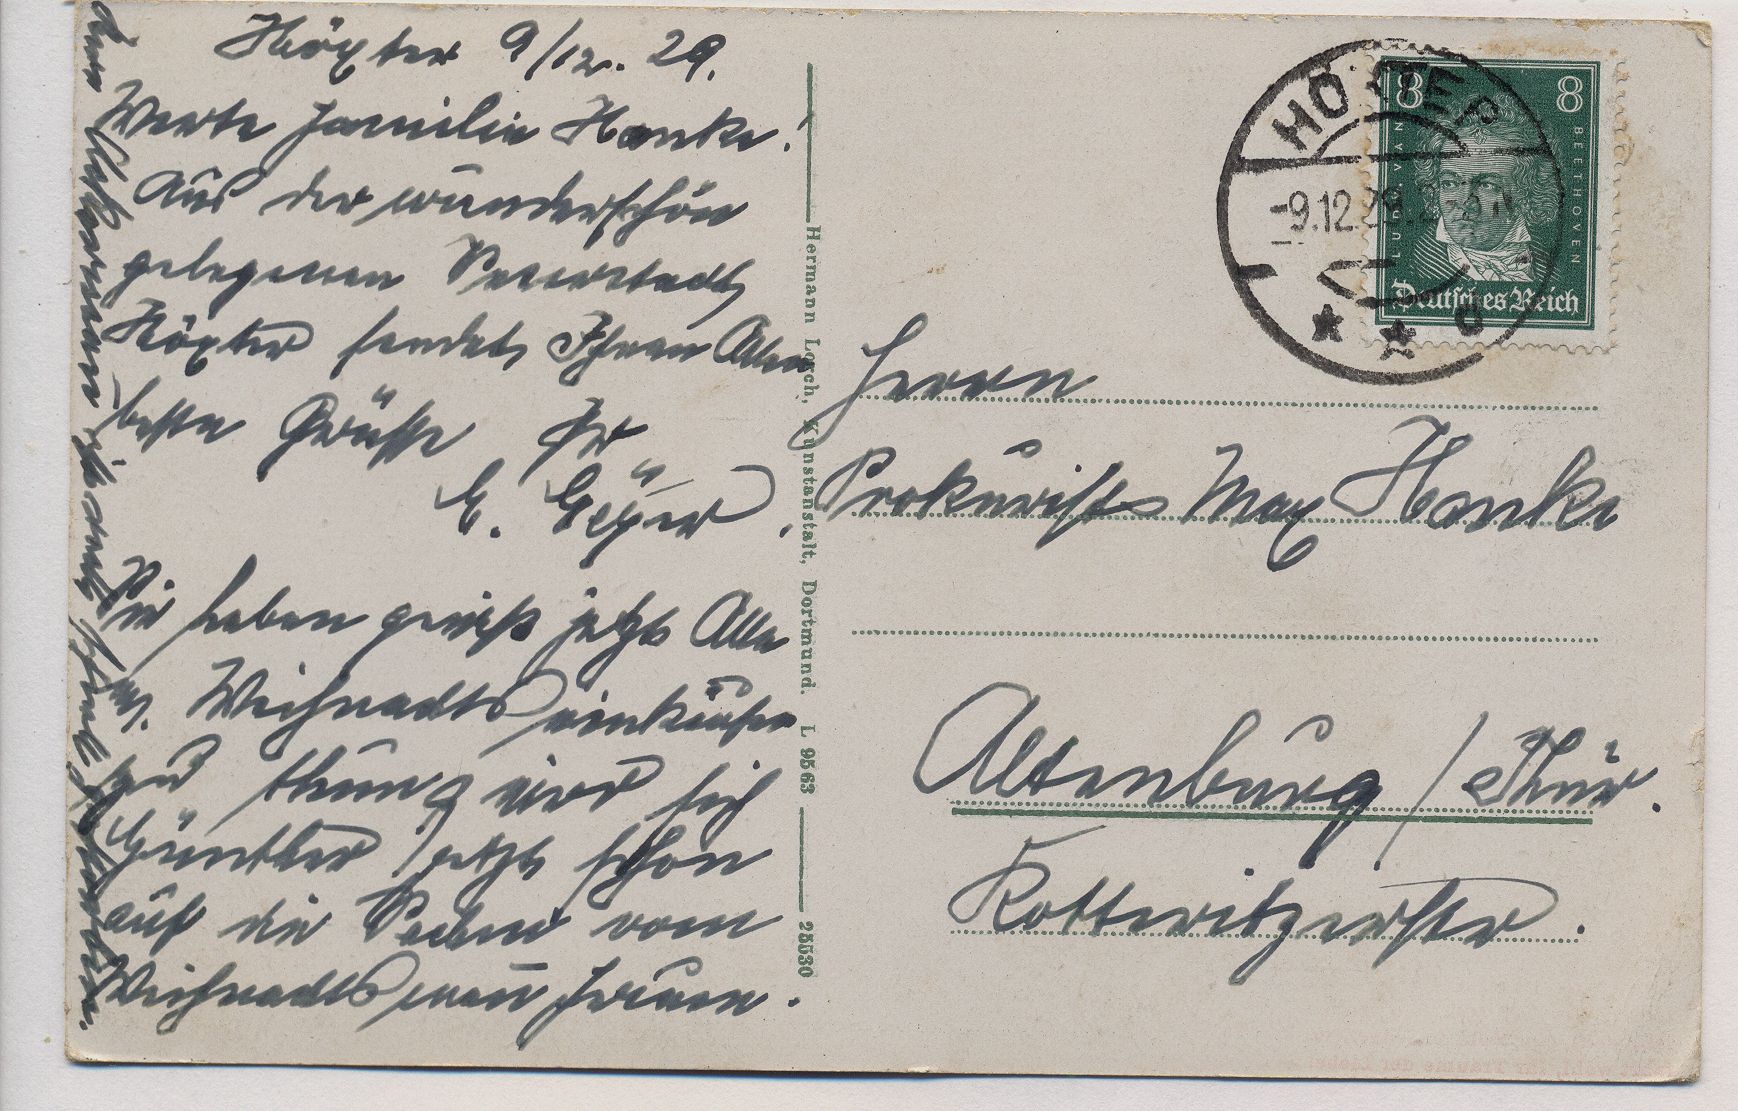 Höxter 9/12. 29.
Werte Familie Hanke!
Aus der wunderschön
gelegenen Weserstadt
Höxter sendet Ihnen Allen
beste Grüsse Ihr
E. Geyer.
Sie haben gewiß jetzt Alle
Weihnachtseinkäufe
zu
wird sich
Günther jetzt schon
auf die vom
Weihnachtsmann freuen.
HÖXTER
-9.12.29.
* * c
8 8
LUDWIG VAN
BEETHOVEN
Deutsches Reich
Hermann Lorch, Kunstanstalt, Dortmund. L 9563
25530
Herrn
Prokurist Max Hanke
Altenburg / Thür.
Kotteritzerstr.